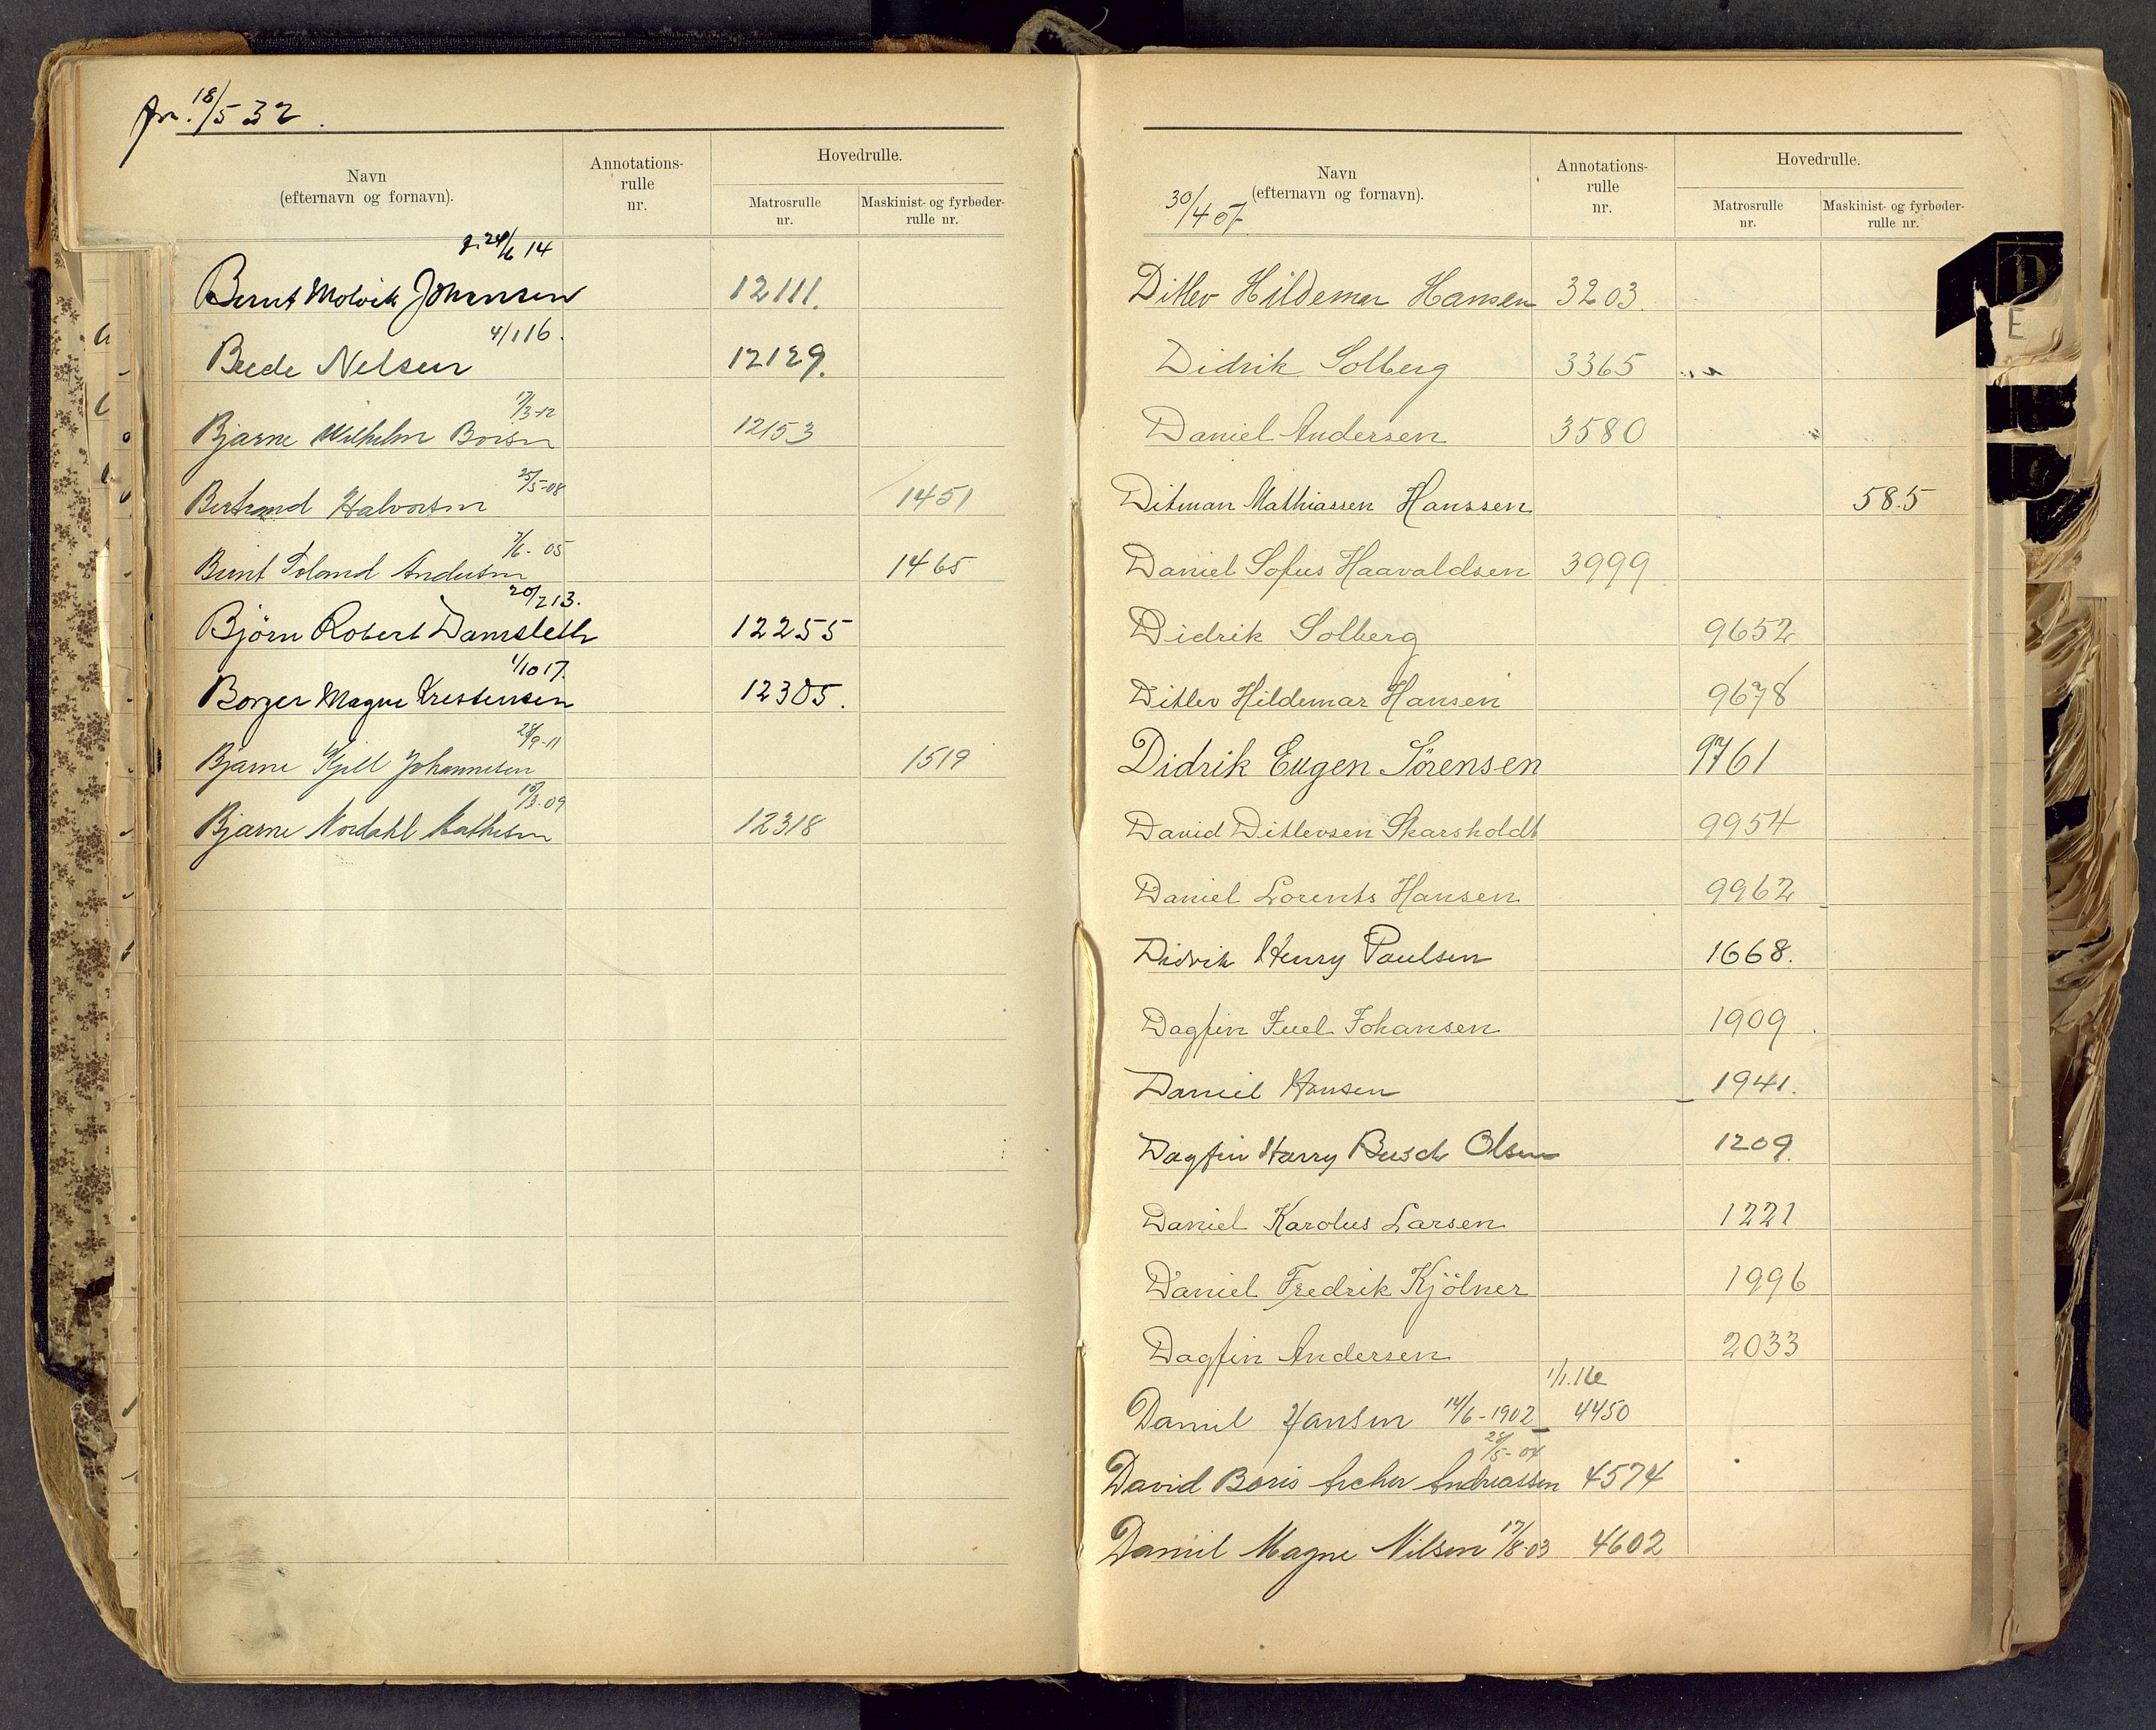 18/5 32.
Hovedrulle.
Navn
(efternavn og fornavn).
Annotations-
rulle
nr.
Matrosrulle
nr.
Maskinist- og fyrbøder-
rulle nr.
24/6 14
Bernt Molvik Johansen 12111.
4/1 16.
Brede Nelsen 12129.
17/3-12
Bjarne Wilhelm 12153
25/5-08
Bertrand Halvorsen 1451
7/6-05
Bernt Andersen 1465
20/2 13.
Björn Robert Damsleth 12255
1/10 17.
Borger Magne Kristensen 12305.
28/9-11
Bjarne Kjell Johannesen 1519
10/3-09
Bjarne Nordahl Mathisen 12318
Hovedrulle.
Navn
(efternavn og fornavn).
Annotations-
rulle
nr.
Matrosrulle
nr.
Maskinist- og fyrbøder-
rulle nr.
30/4 07.
Ditlev Hildemar Hansen 3203.
Didrik Solberg 3365
Daniel Andersen 3580
Ditman Mathiassen Hanssen 585
Daniel Sofus Haavaldsen 3999
Didrik Solberg 9652
Ditlev Hildemar Hansen 9678
Didrik Eugen Sörensen 9761
David Ditlevsen Skarsholdt 9954
Daniel Lorents Hansen 9962
Didrik Henry Paulsen 1668.
Dagfin Juel Johansen 1909.
Daniel Hansen 1941.
Dagfin Harry Busch Olsen 1209.
Daniel Karolus Larsen 1221
Daniel Fredrik Kjölner 1996
Dagfin Andersen 2033
Daniel Hansen 14/6-1902 4450
28/5-04
David Boris Archer Andreassen 4574
Daniel Magne Nilsen 17/8-03 4602
D
E